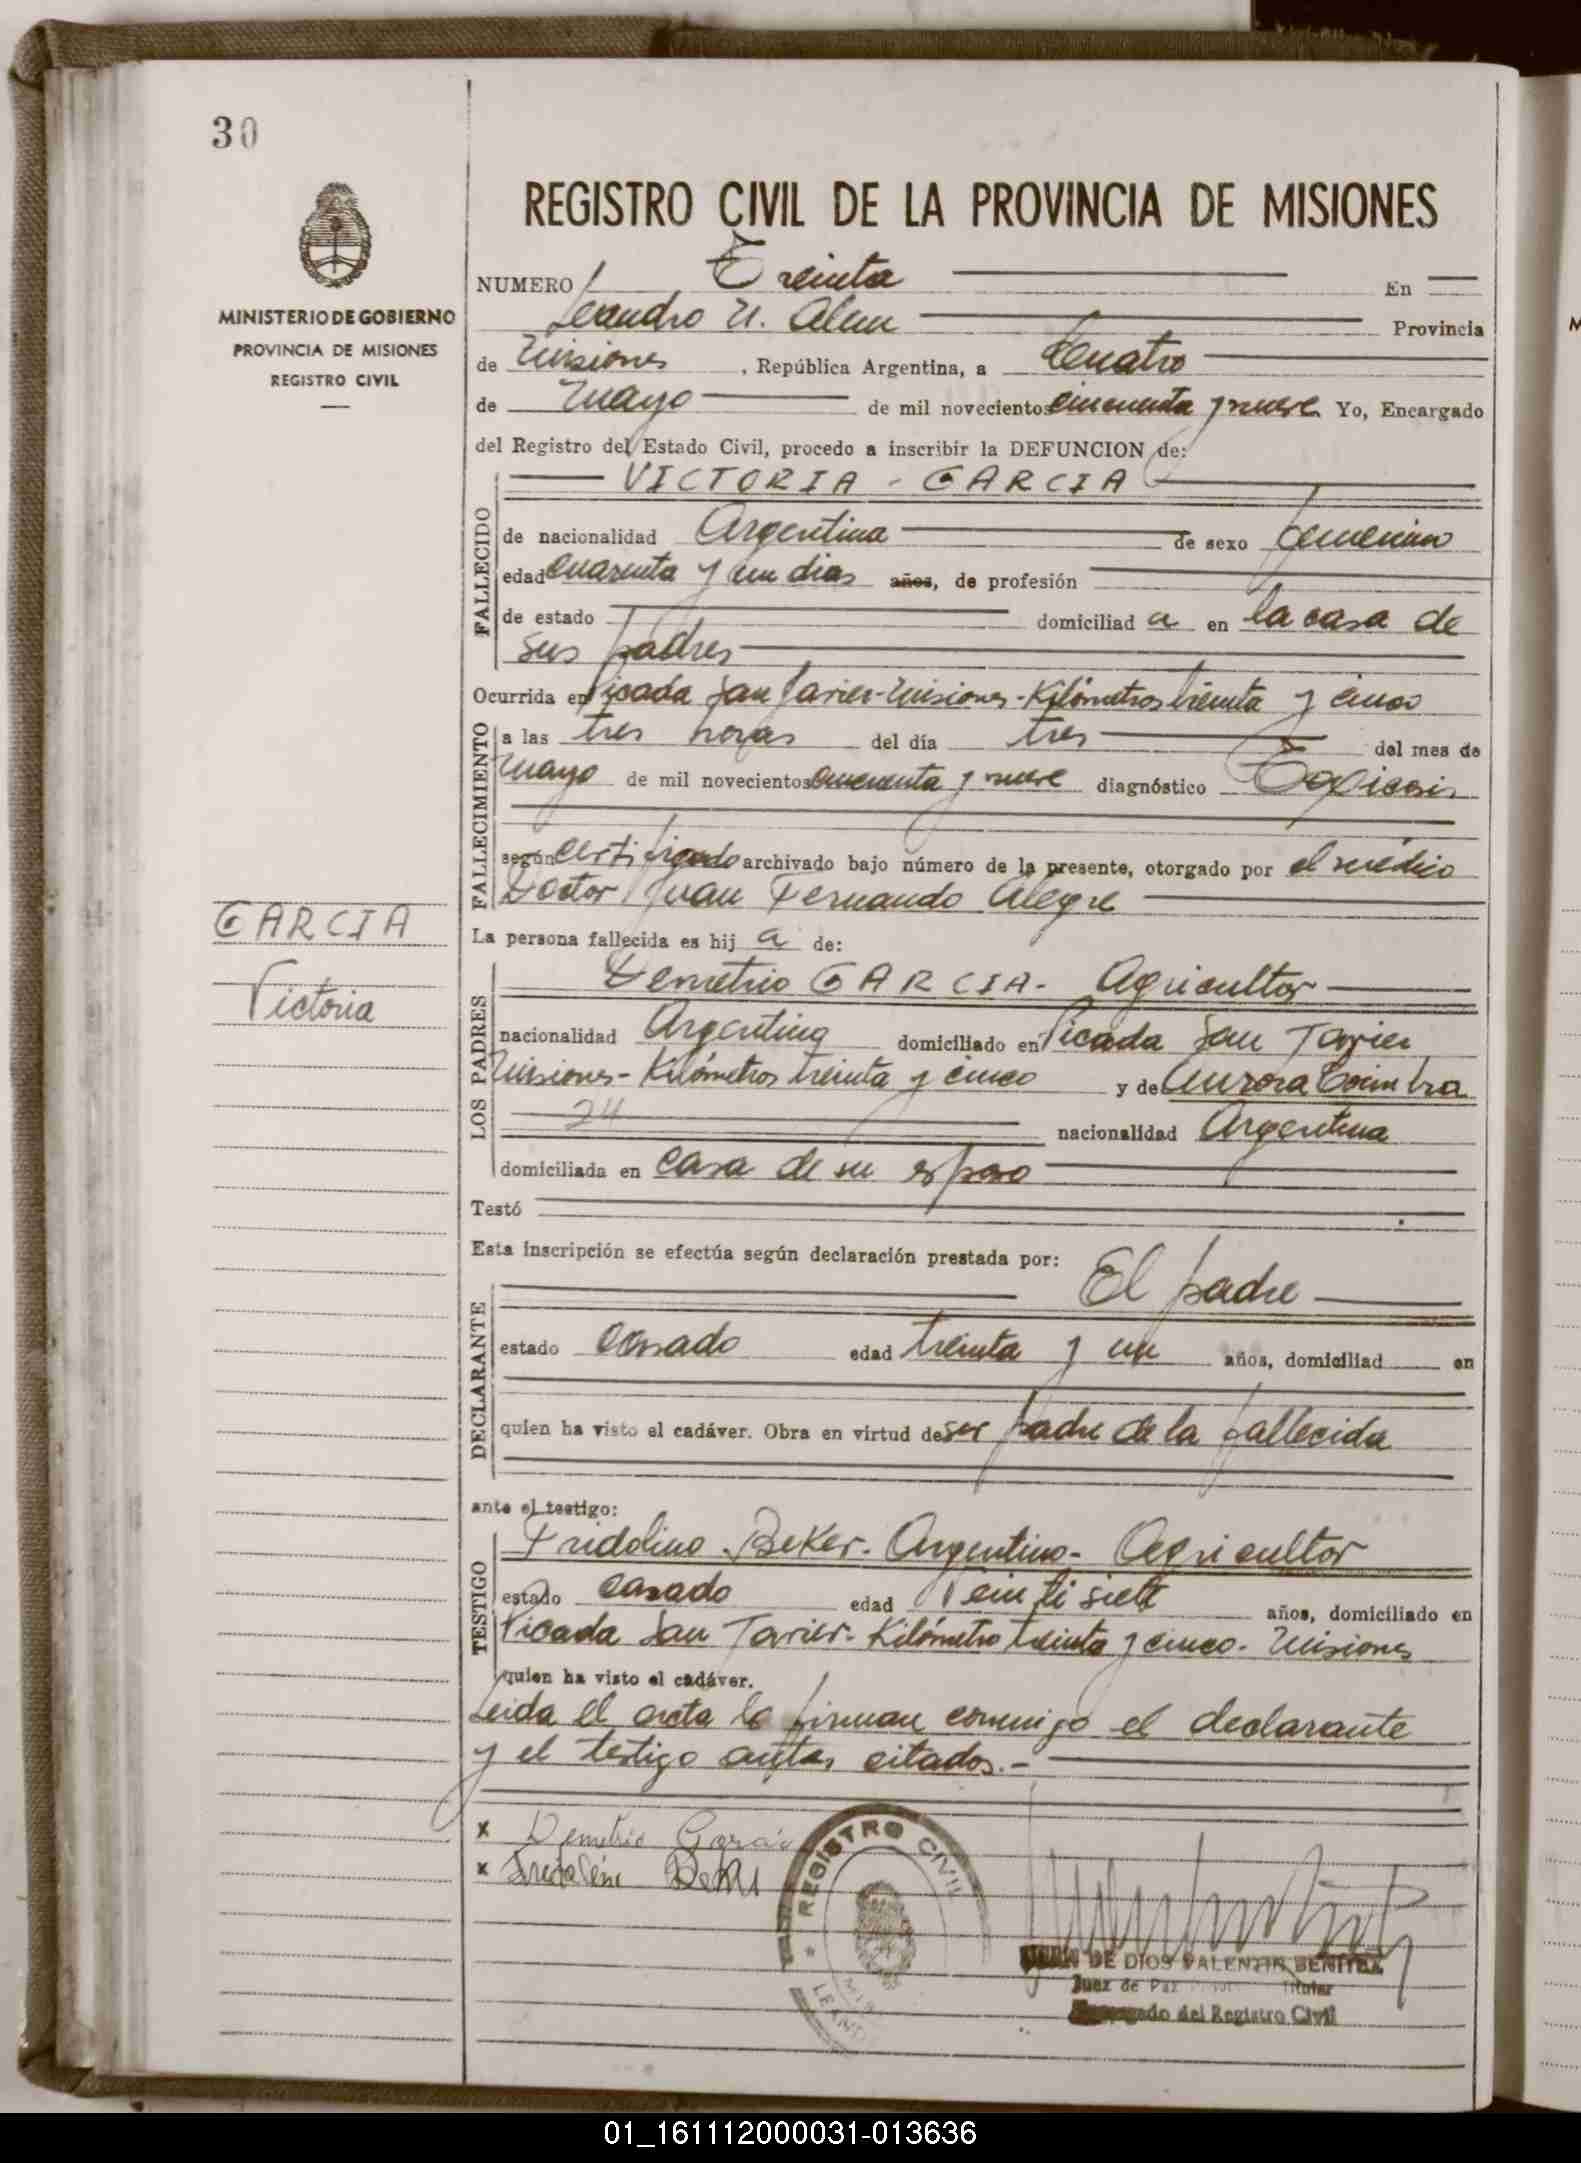 30
REGISTRO CIVIL DE LA PROVINCIA DE MISIONES
MINISTERIO DE GOBIERNO
PROVINCIA DE MISIONES
REGISTRO CIVIL
NUMERO Treinta En
Leandro N. Alem Provincia
de Misiones, República Argentina, a Cuatro
de Mayo de mil novecientos cincuenta y nueve Yo, Encargado
del Registro del Estado Civil, procedo a inscribir la DEFUNCION de:
VICTORIA - GARCIA
FALLECIDO
de nacionalidad Argentina de sexo femenino
edad cuarenta y un dias años, de profesión
de estado domiciliad a en la casa de
sus padres
Ocurrida en Picada San Javier - Misiones - Kilómetros treinta y cinco
FALLECIMIENTO
a las tres horas del día tres del mes de
Mayo de mil novecientos cincuenta y nueve diagnóstico Toxicosis
según certificado archivado bajo número de la presente, otorgado por el médico
Doctor Juan Fernando Alegre
GARCIA
Victoria
La persona fallecida es hij a de:
LOS PADRES
Demetrio GARCIA - Agricultor
nacionalidad Argentina domiciliado en Picada San Javier
Misiones - Kilómetros treinta y cinco y de Aurora Coimbra
24 nacionalidad Argentina
domiciliada en casa de su esposo
Testó
Esta inscripción se efectúa según declaración prestada por:
El padre
DECLARANTE
estado casado edad treinta y un años, domiciliad en
quien ha visto el cadáver. Obra en virtud de ser padre de la fallecida
ante el testigo:
TESTIGO
Fridolino Beker - Argentino - Agricultor
estado casado edad Veintisiete años, domiciliado en
Picada San Javier - Kilómetro treinta y cinco - Misiones
quien ha visto el cadáver.
Leida el acta la firman conmigo el declarante
y el testigo antes citados.-
x Demetrio Garcia
x Fridolino Beker
REGISTRO CIVIL
LEAND
JUAN DE DIOS VALENTIN BENITEZ
Juez de Paz Titular
Encargado del Registro Civil
01_161112000031-013636